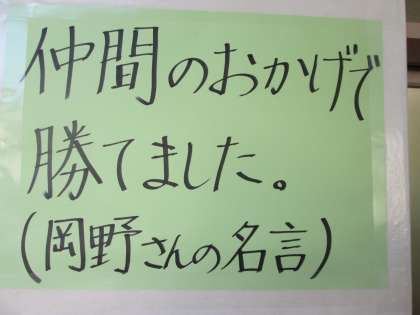 仲間のおかげで
勝てました。
(岡野さんの名言)